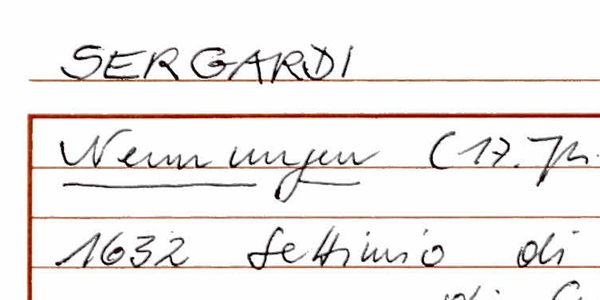 SERGARDI
Nennungen (17. Jh.
1632 Settimio di
di